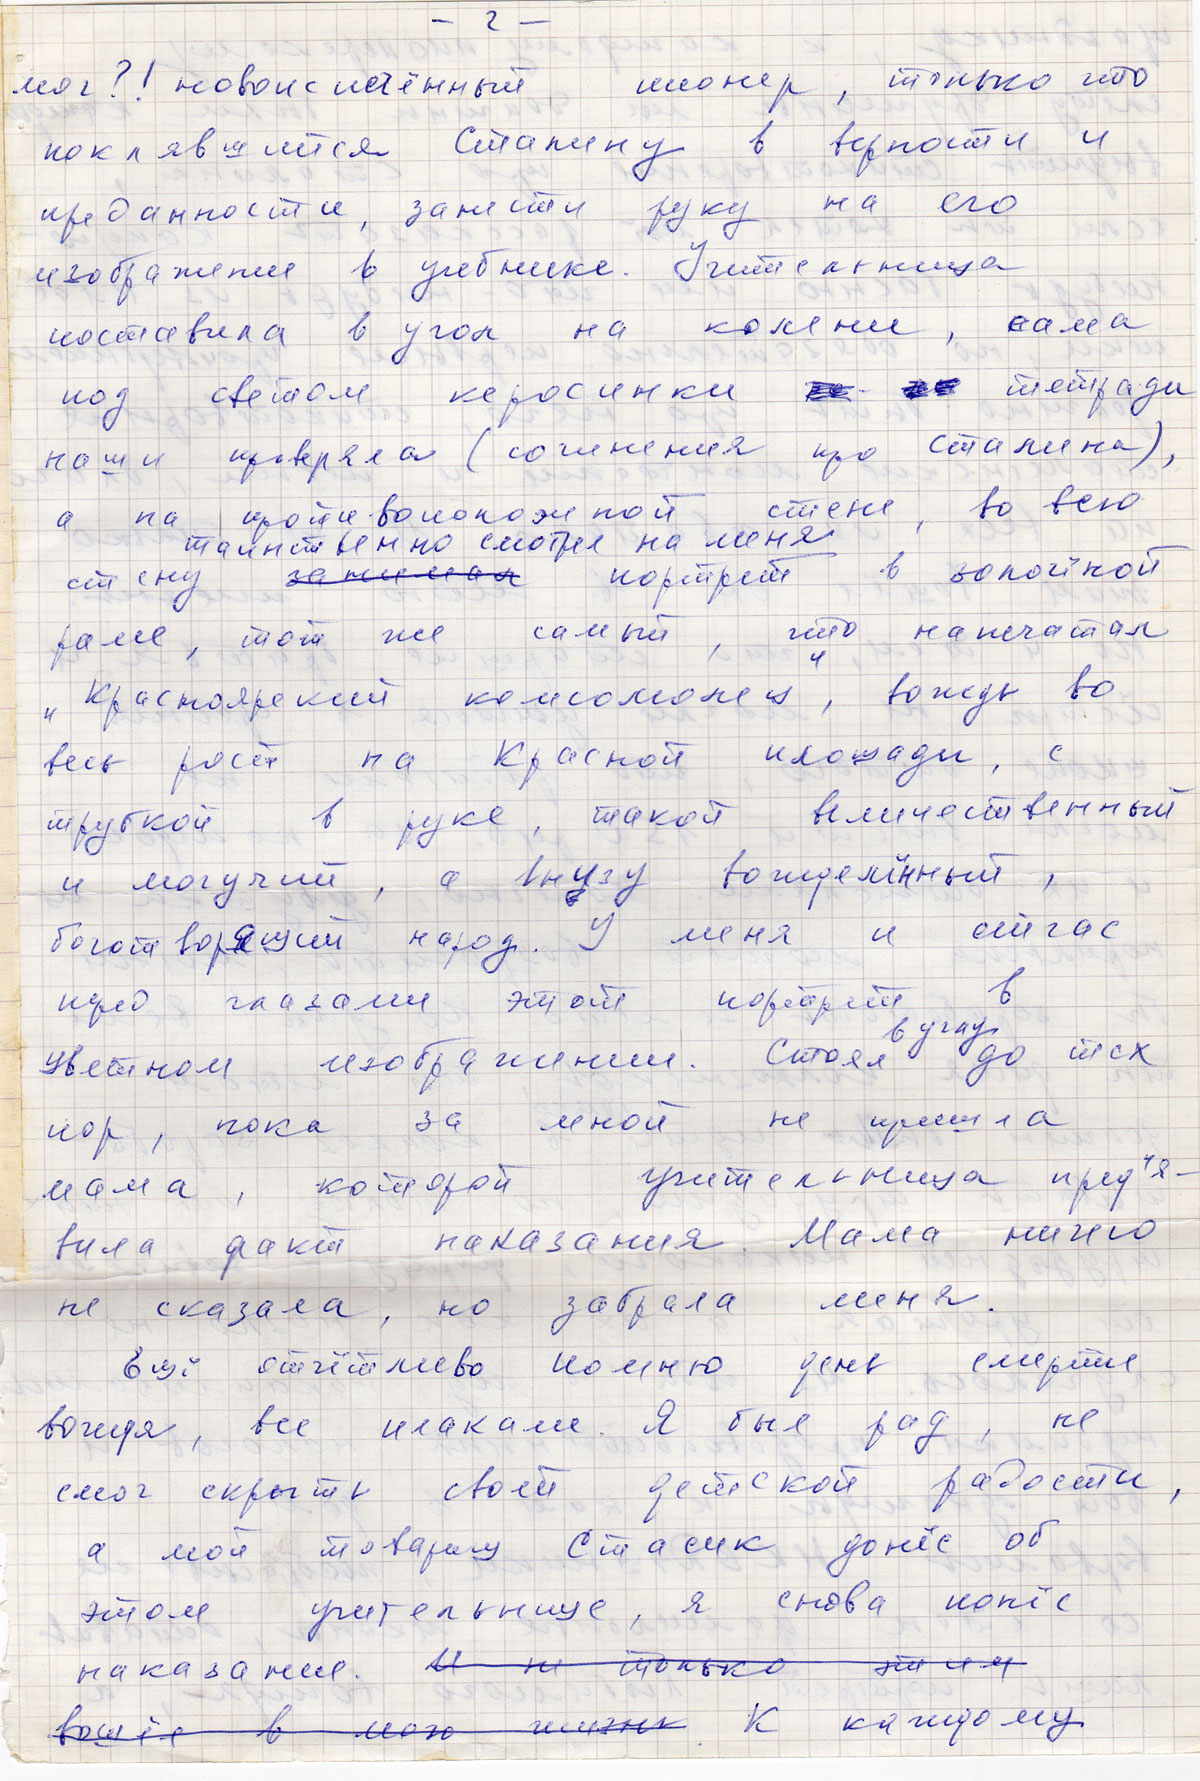 - 2 -
мог?! новоиспечённый пионер, только что
поклявшийся Сталину в верности и
преданности, занести руку на его
изображение в учебнике. Учительница
поставила в угол на колени, сама
под светом керосинки тетради
наши проверяла (сочинения про Сталина),
а на противоположной стене, во всю
таинственно смотрел на меня
стену занимал портрет в золочёной
раме, тот же самый, что напечатал
"Красноярский комсомолец", вождь во
весь рост на Красной площади, с
трубкой в руке, такой величественный
и могучий, а внизу вожделённый,
боготворящий народ. У меня и сейчас
пред глазами этот портрет в
в углу
цветном изображении. Стоял до тех
пор, пока за мной не пришла
мама, которой учительница предъя-
вила факт наказания. Мама ничего
не сказала, но забрала меня.
Ещё отчётливо помню день смерти
вождя, все плакали. Я был рад, не
смог скрыть своей детской радости,
а мой товарищ Стасик донёс об
этом учительнице, я снова понёс
наказание. И не только этим
вошёл в мою жизнь. К каждому